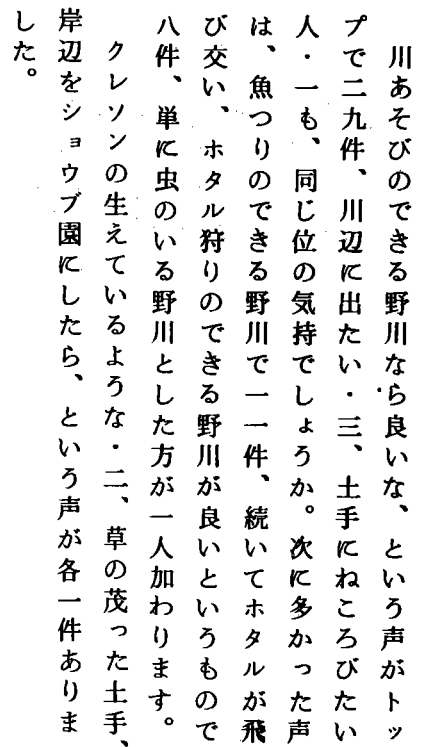 川あそびのできる野川なら良いな、という声がトッ
プで二九件、川辺に出たい・三、土手にねころびたい
人・一も、同じ位の気持でしょうか。次に多かった声
は、魚つりのできる野川で一一件、続いてホタルが飛
び交い、ホタル狩りのできる野川が良いというもので
八件、単に虫のいる野川とした方が一人加わります。
クレソンの生えているような・二、草の茂った土手、
岸辺をショウブ園にしたら、という声が各一件ありま
した。